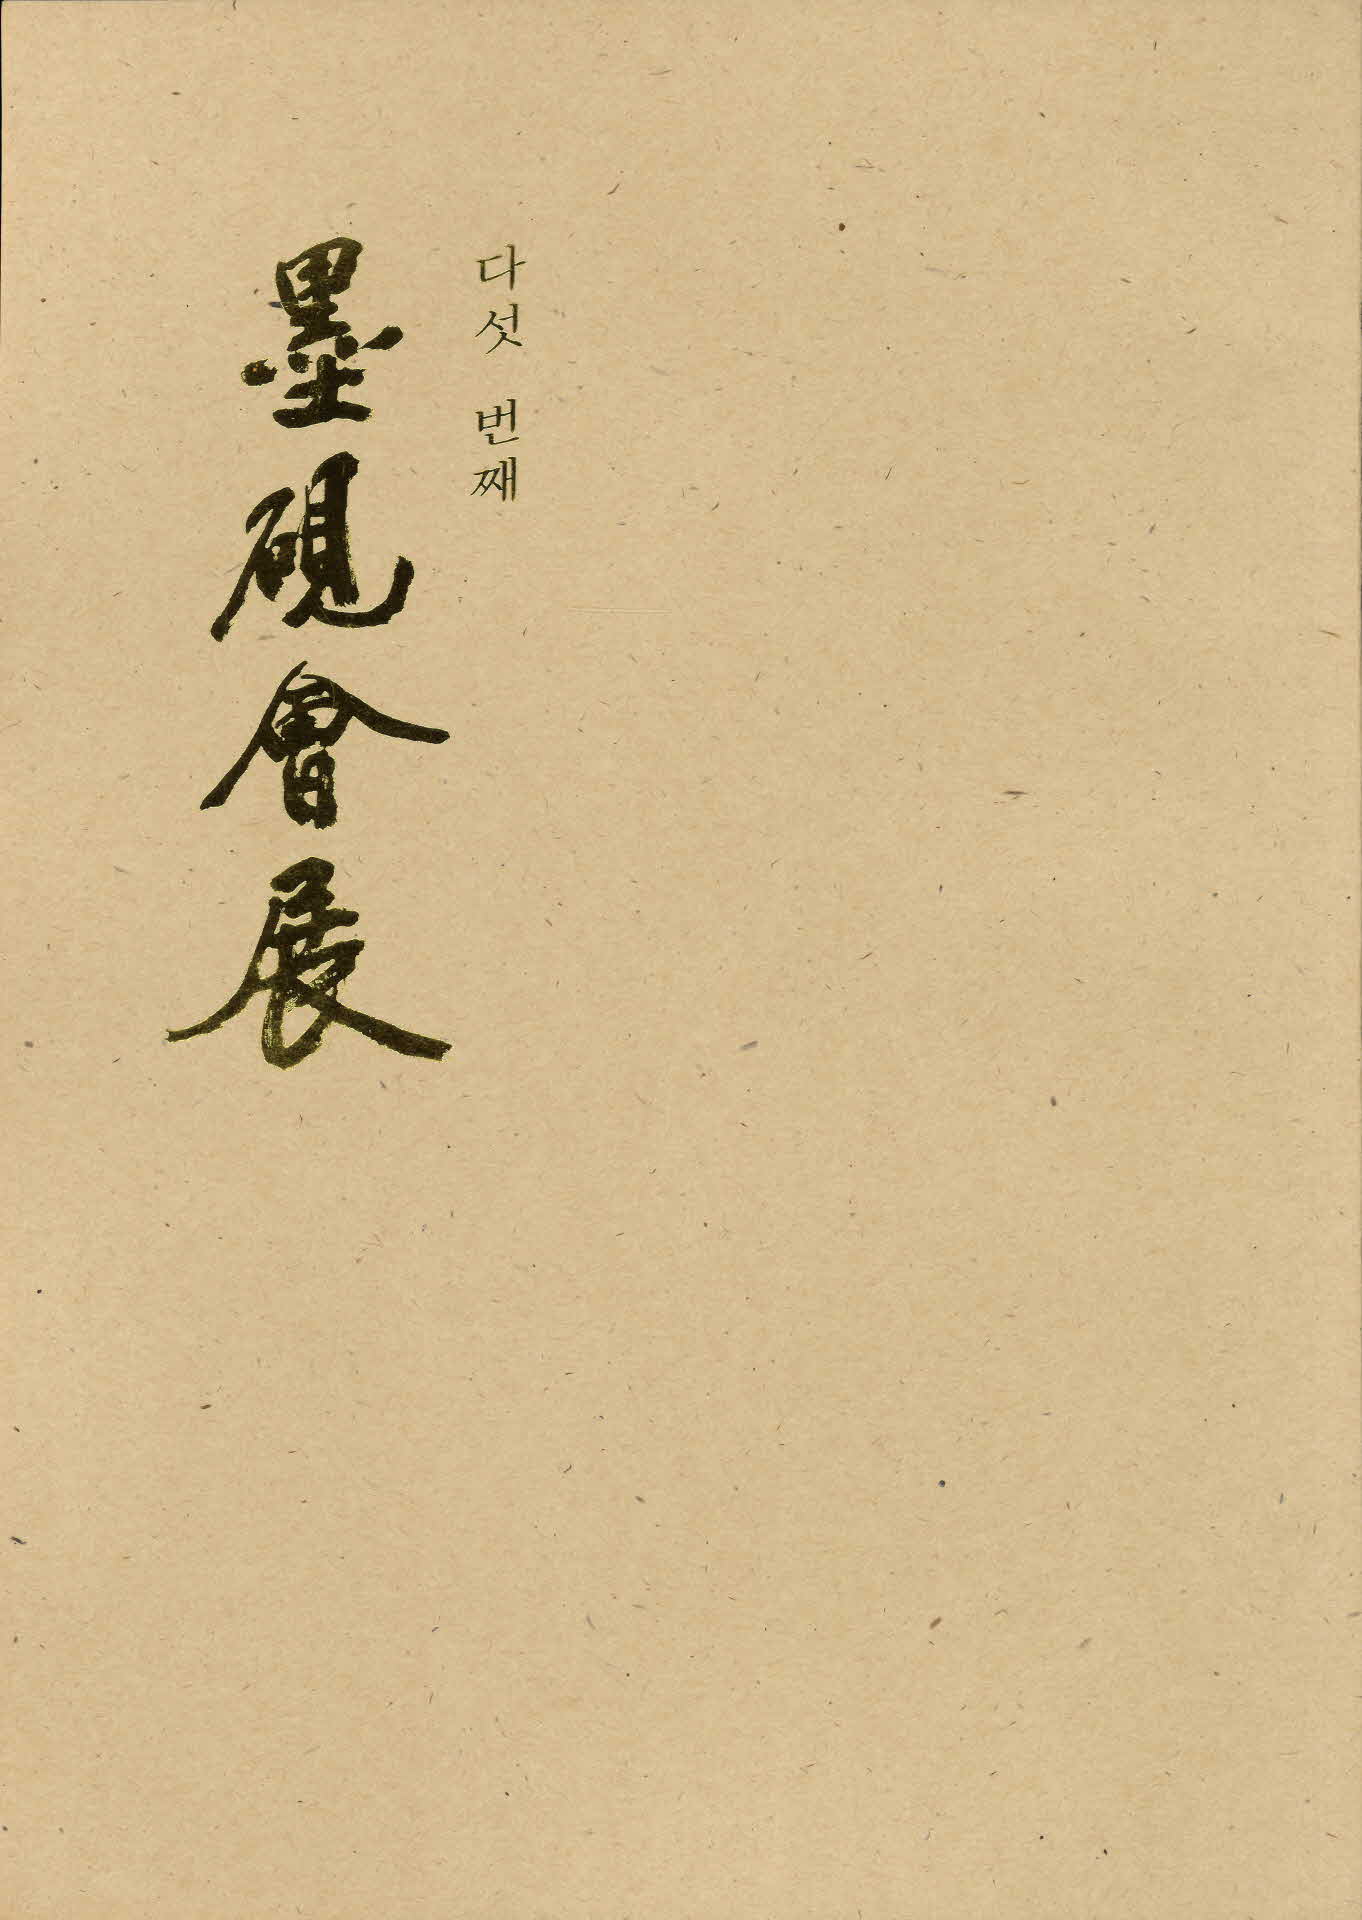 다섯 번째
墨硯會展